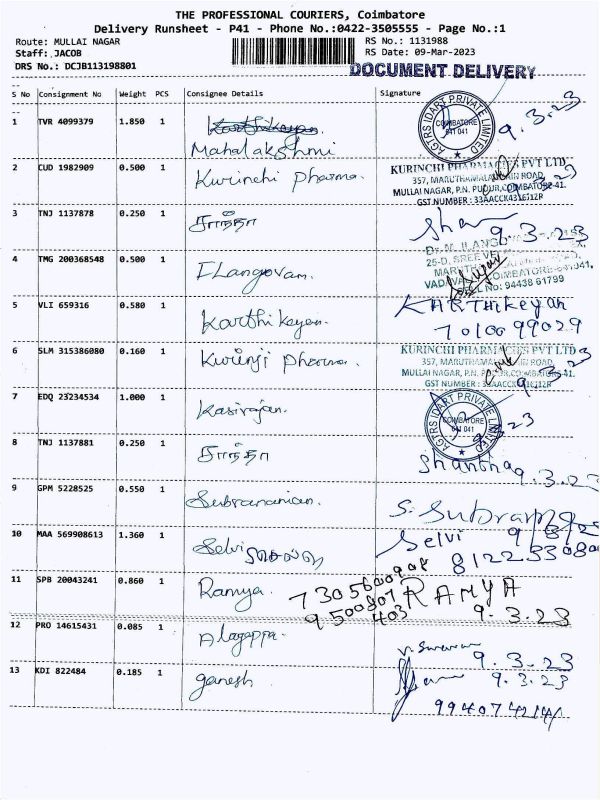 THE PROFESSIONAL COURIERS, Coimbatore
Delivery Runsheet - P41 - Phone No.:0422-3505555 - Page No.:1
Route: MULLAI NAGAR RS No.: 1131988
Staff: JACOB RS Date: 09-Mar-2023
DRS No.: DCJB113198801
DOCUMENT DELIVERY
S No Consignment No Weight PCS Consignee Details Signature
1 TVR 4099379 1.850 1 Karthikeyan
Mahalakshmi
AGTRS IDART PRIVATE LIMITED
COIMBATORE
641 041
9.3.23
2 CUD 1982909 0.500 1 Kurinchi Pharma.
KURINCHI PHARMACIES PVT LTD
357, MARUTHAMALAI MAIN ROAD,
MULLAI NAGAR, P.N. PUDUR, COIMBATORE-41.
GST NUMBER : 33AACCK4316J1ZR
3 TNJ 1137878 0.250 1 சாந்தா
9.3.23
4 TMG 200368548 0.500 1 ILangovan.
25-D, SREE
COIMBATORE-641041,
CELL NO: 94438 61799
5 VLI 659316 0.580 1 Karthikeyan. KARTHikeyan
7010099029
6 SLM 315386080 0.160 1 Kurinji Pharma.
KURINCHI PHARMACIES PVT LTD
357, MARUTHAMALAI MAIN ROAD,
MULLAI NAGAR, P.N. PUDUR, COIMBATORE-41.
GST NUMBER : 33AACCK4316J1ZR
7 EDQ 23234534 1.000 1 Kasirajan.
AGTRS IDART PRIVATE LIMITED
COIMBATORE
641 041
8 TNJ 1137881 0.250 1 சாந்தா Shantha
9.3.23
9 GPM 5228525 0.550 1 Subramanian. S. Subramani
10 MAA 569908613 1.360 1 Selvi Selvi
11 SPB 20043241 0.860 1 Ramya. RAMYA
9.3.23
12 PRO 14615431 0.085 1 Alagappa.
9.3.23
13 KDI 822484 0.185 1 ganesh 9.3.23